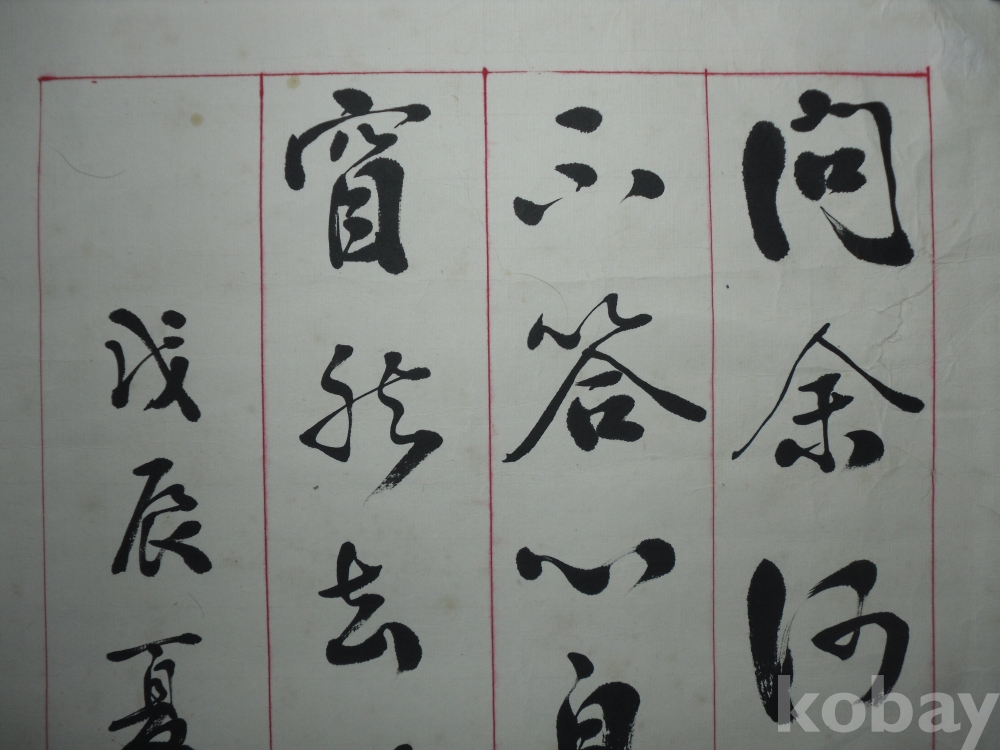 問余何
不答心自
窅然去
戊辰夏
kobay